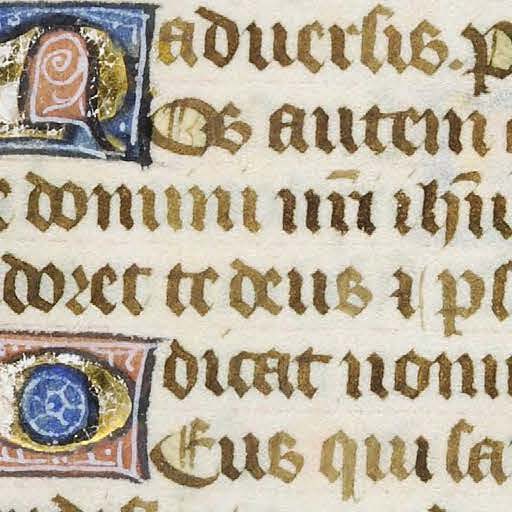 aduersis. p
Os autem
domini nr̄i ihū
doret te deus ⁊ ps
dicat nomi
Deus qui sa